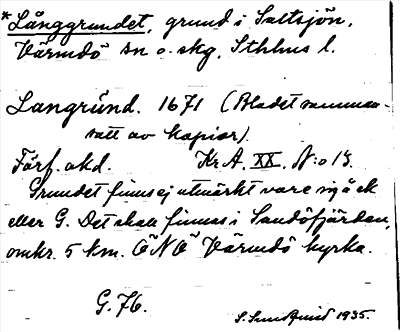 *Långgrundet, grund i Saltsjön,
Värmdö sn o. skg, Sthlms l.
Langründ. 1671 (Bladet samman-
satt av kopior).
Förf. okd. Kr. A. XX. N:o 13.
Grundet finns ej utmärkt vare sig å ek
eller G. Det skall finnas i Sandöfjärden,
omkr. 5 km. ÖNÖ Värmdö kyrka.
G. 76.
S. Sundquist 1935.